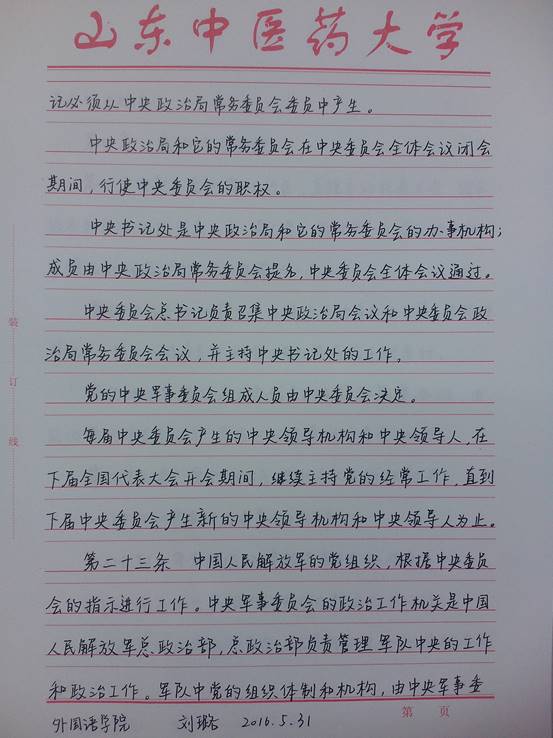 山东中医药大学
记必须从中央政治局常务委员会委员中产生。
中央政治局和它的常务委员会在中央委员会全体会议闭会
期间，行使中央委员会的职权。
中央书记处是中央政治局和它的常务委员会的办事机构；
成员由中央政治局常务委员会提名，中央委员会全体会议通过。
中央委员会总书记负责召集中央政治局会议和中央委员会政
治局常务委员会会议，并主持中央书记处的工作。
党的中央军事委员会组成人员由中央委员会决定。
每届中央委员会产生的中央领导机构和中央领导人，在
下届全国代表大会开会期间，继续主持党的经常工作，直到
下届中央委员会产生新的中央领导机构和中央领导人为止。
第二十三条 中国人民解放军的党组织，根据中央委员
会的指示进行工作。中央军事委员会的政治工作机关是中国
人民解放军总政治部，总政治部负责管理军队中央的工作
和政治工作。军队中党的组织体制和机构，由中央军事委
外国语学院 刘璐 2016.5.31
第 页
装
订
线